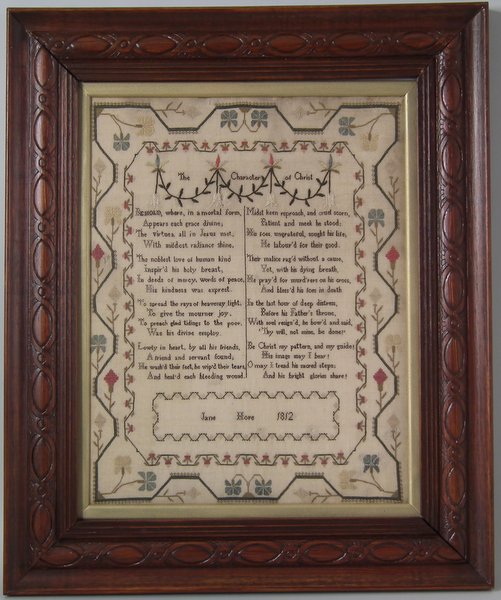 The Character of Christ
BEHOLD, where, in a mortal form,
Appears each grace divine;
The virtues, all in Jesus met,
With mildest radiance shine,
The noblest love of human kind
Inspir'd his holy breast,
In deeds of mercy, words of peace,
His kindness was exprest.
To spread the rays of heavenly light,
To give the mourner joy,
To preach glad tidings to the poor,
Was his divine employ.
Lowly in heart, by all his friends,
A friend and servant found;
He wash'd their feet, he wip'd their tears
And heal'd each bleeding wound
Midst keen reproach, and cruel scorn,
Patient and meek he stood;
His foes, ungrateful, sought his life,
He labour'd for their good.
Their malice rag'd without a cause,
Yet, with his dying breath,
He pray'd for murd'rers on his cross,
And bless'd his foes in death
In the last hour of deep distress,
Before his Father's throne,
With soul resign'd, he bow'd and said,
"Thy will, not mine, be done!
Be Christ my pattern, and my guide!
His image may I bear!
O may I tread his sacred steps;
And his bright glories share!
Jane Hore 1812